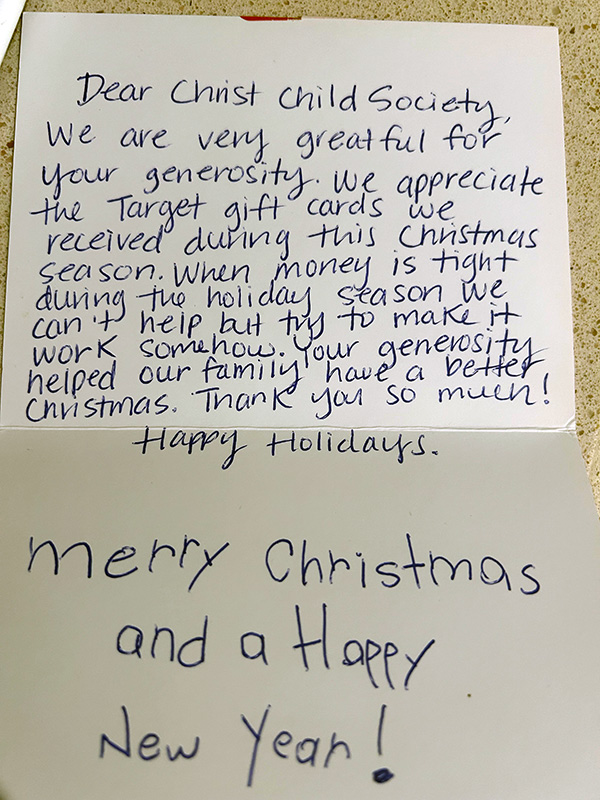 Dear Christ Child Society,
We are very greatful for
your generosity. We appreciate
the Target gift cards we
received during this Christmas
season. When money is tight
during the holiday season we
can't help but try to make it
work somehow. Your generosity
helped our family have a better
Christmas. Thank you so much!
Happy Holidays.
Merry Christmas
and a Happy
New Year!